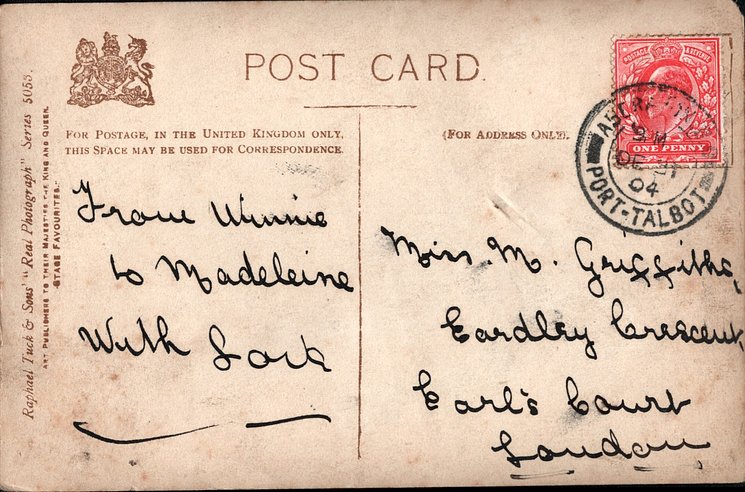 POST CARD.
FOR POSTAGE, IN THE UNITED KINGDOM ONLY,
THIS SPACE MAY BE USED FOR CORRESPONDENCE.
(FOR ADDRESS ONLY).
Raphael Tuck & Sons' "Real Photograph" Series 5053.
ART PUBLISHERS TO THEIR MAJESTIES THE KING AND QUEEN.
"STAGE FAVOURITES."
From Winnie
to Madeleine
With Love
POSTAGE & REVENUE
ONE PENNY
04
PORT-TALBOT
Miss. M. Griffiths,
Eardley Crescent,
Earl's Court
London